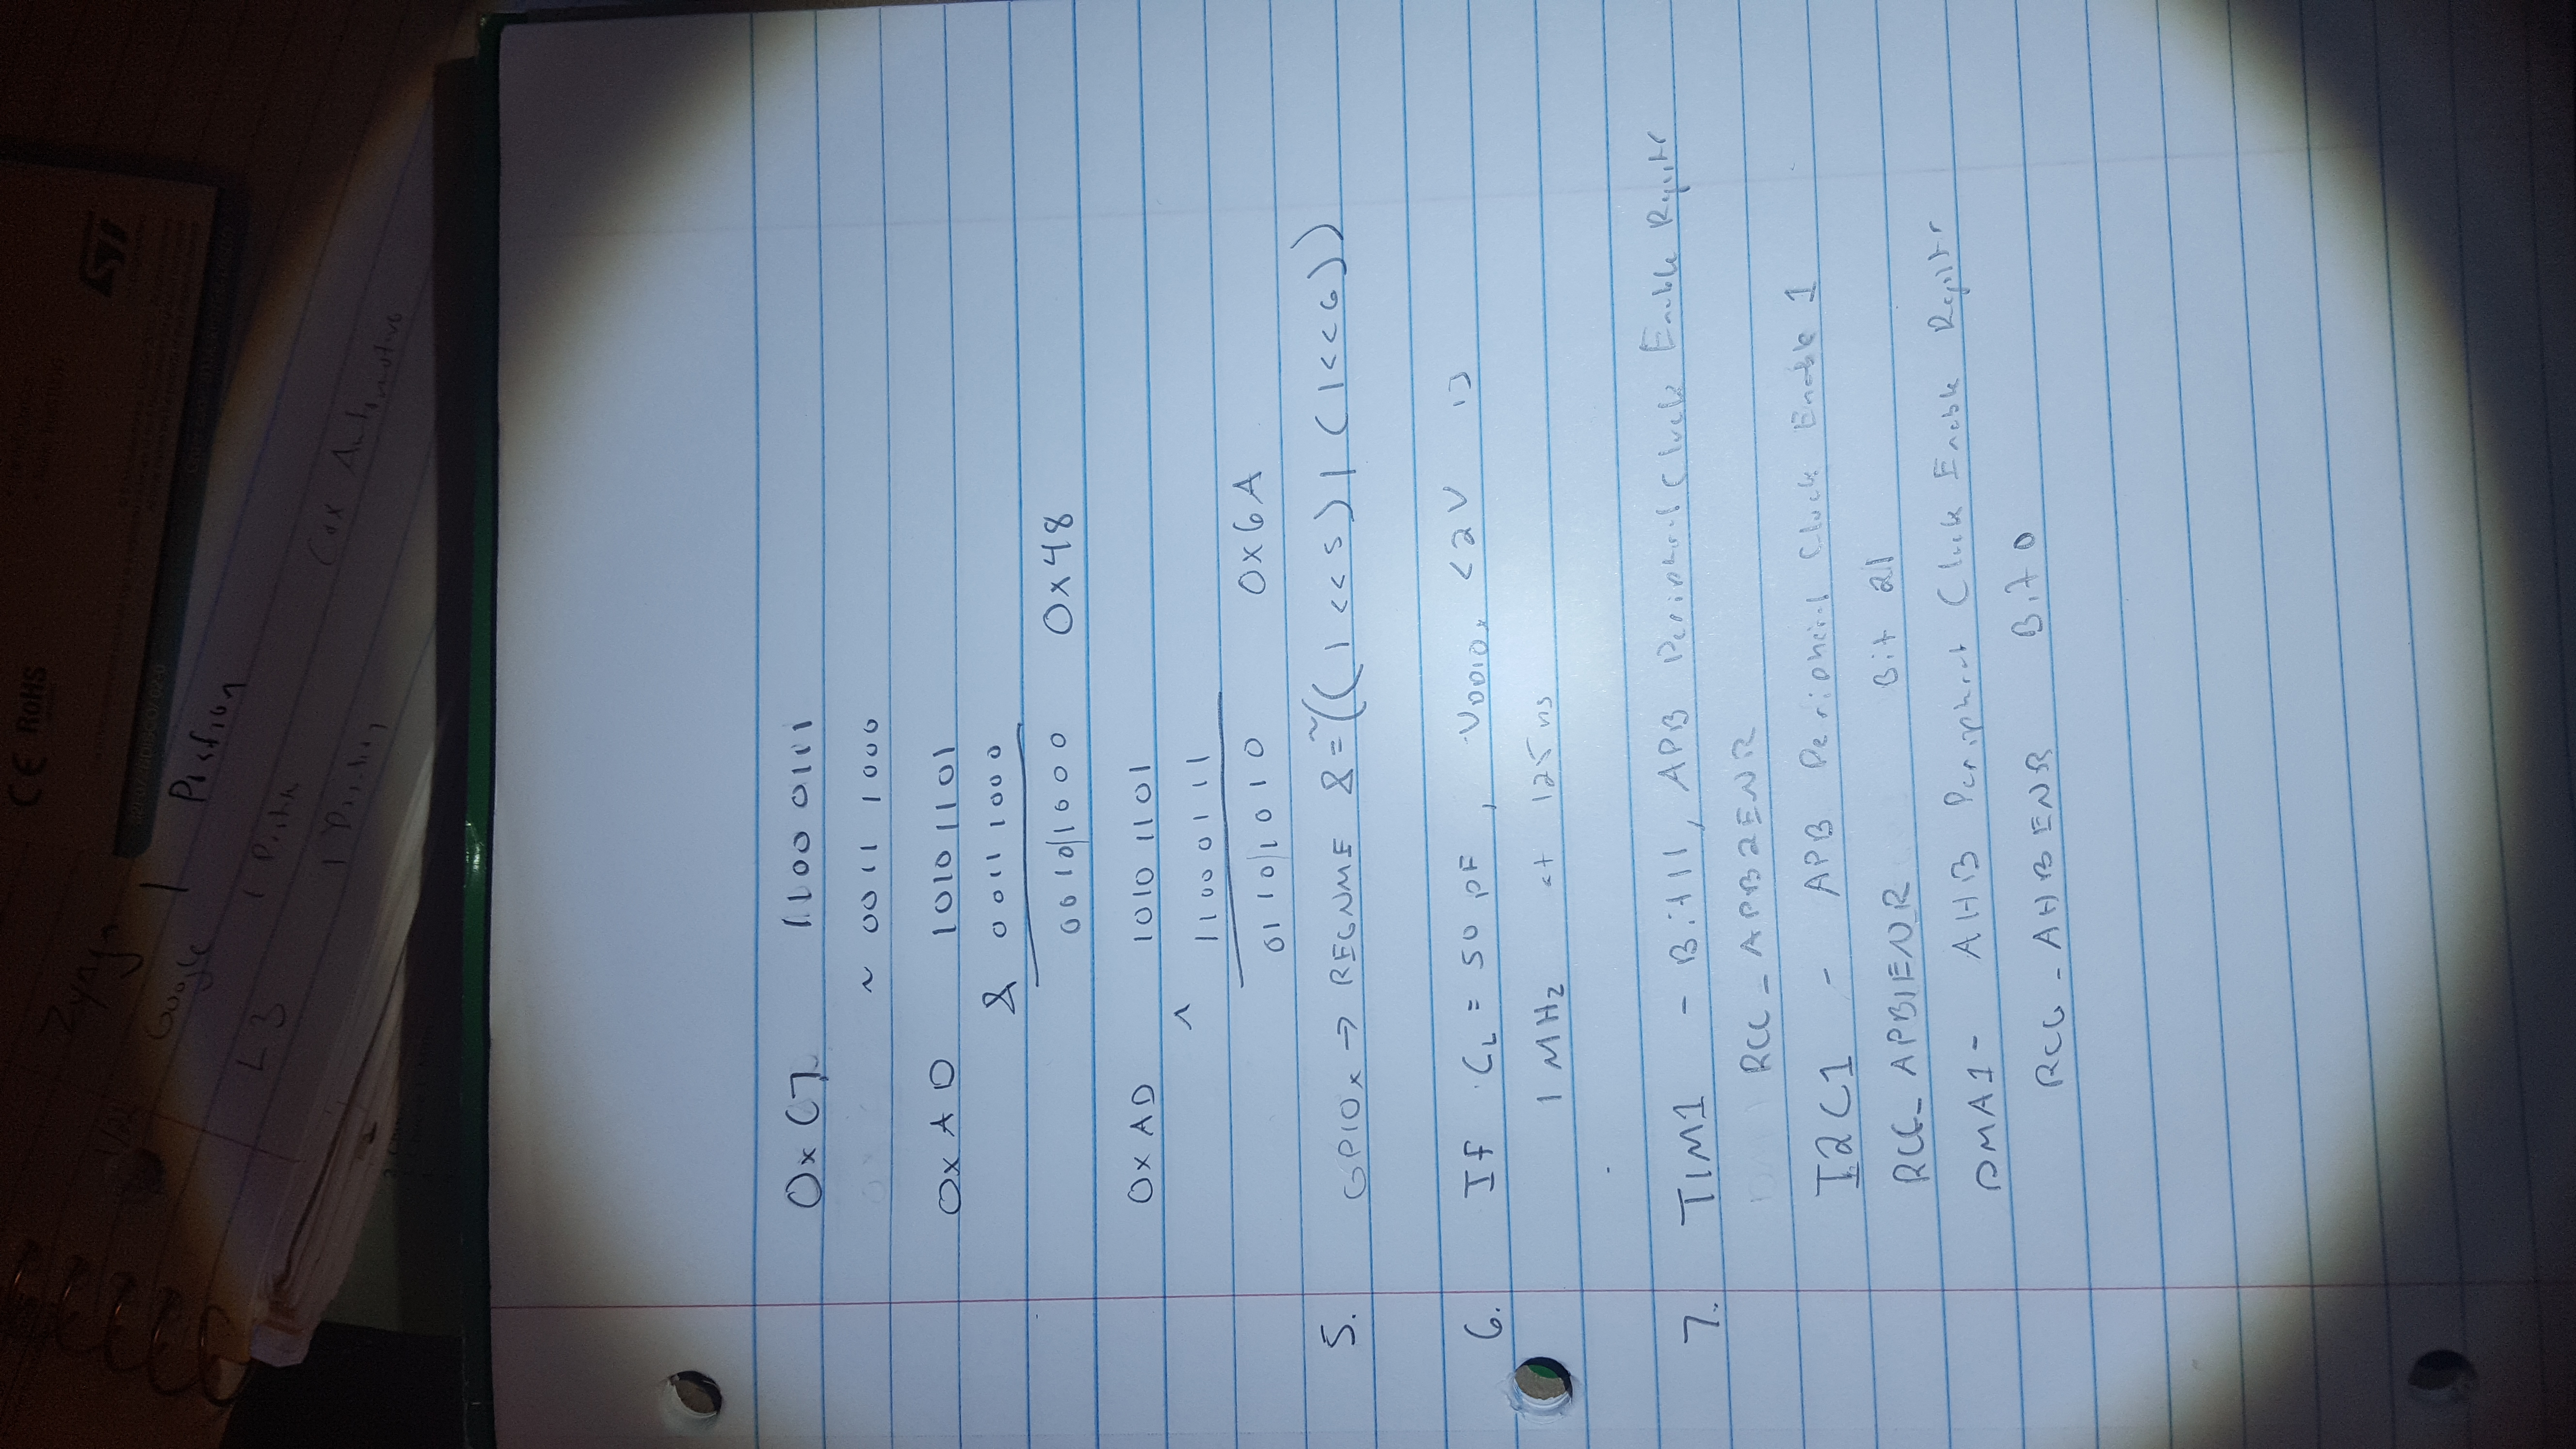 CE RoHS
ST
Zynga
1 Position
Google
L3
Cox Automotive
0xC7 1100 0111
~ 0011 1000
0xAD 1010 1101
& 0011 1000
0010/1000 0x48
0xAD 1010 1101
^ 11000111
0110/1010 0x6A
5. GPIOx → REGNME &=~((1<<5)|(1<<6))
6. If CL = 50 pF, VDDIOx <2V is
1 MHz at 125 ns
7. TIM1 - Bit 11, APB Peripheral Clock Enable Register
RCC_APB2ENR
I2C1 - APB Peripheral Clock Enable 1
RCC_APB1ENR Bit 21
DMA1 - AHB Peripheral Clock Enable Register
RCC_AHBENR Bit 0